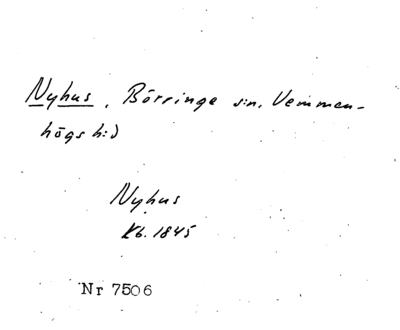 Nyhus, Börringe s:n, Vemmen-
högs h:d
Nyhus
Kb. 1845
Nr 7506